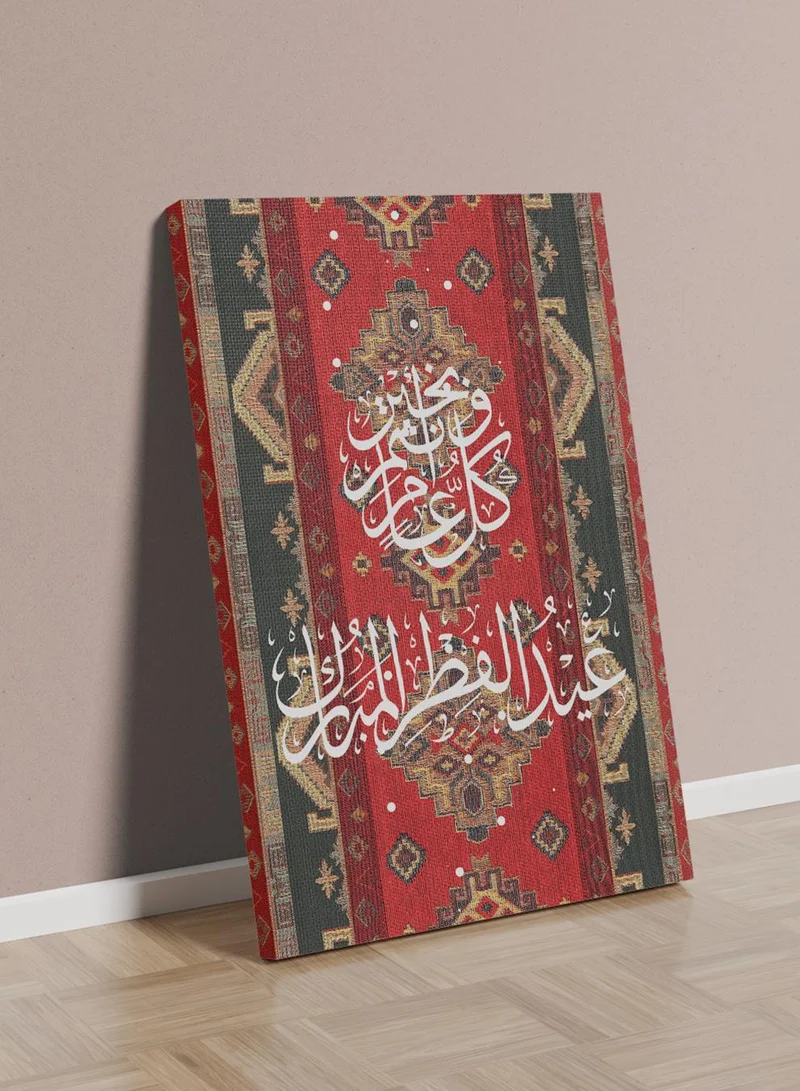 كُلُّ عَامٍ وَأنتم بخير
عِيدُ الفِطرِ المُبَارك